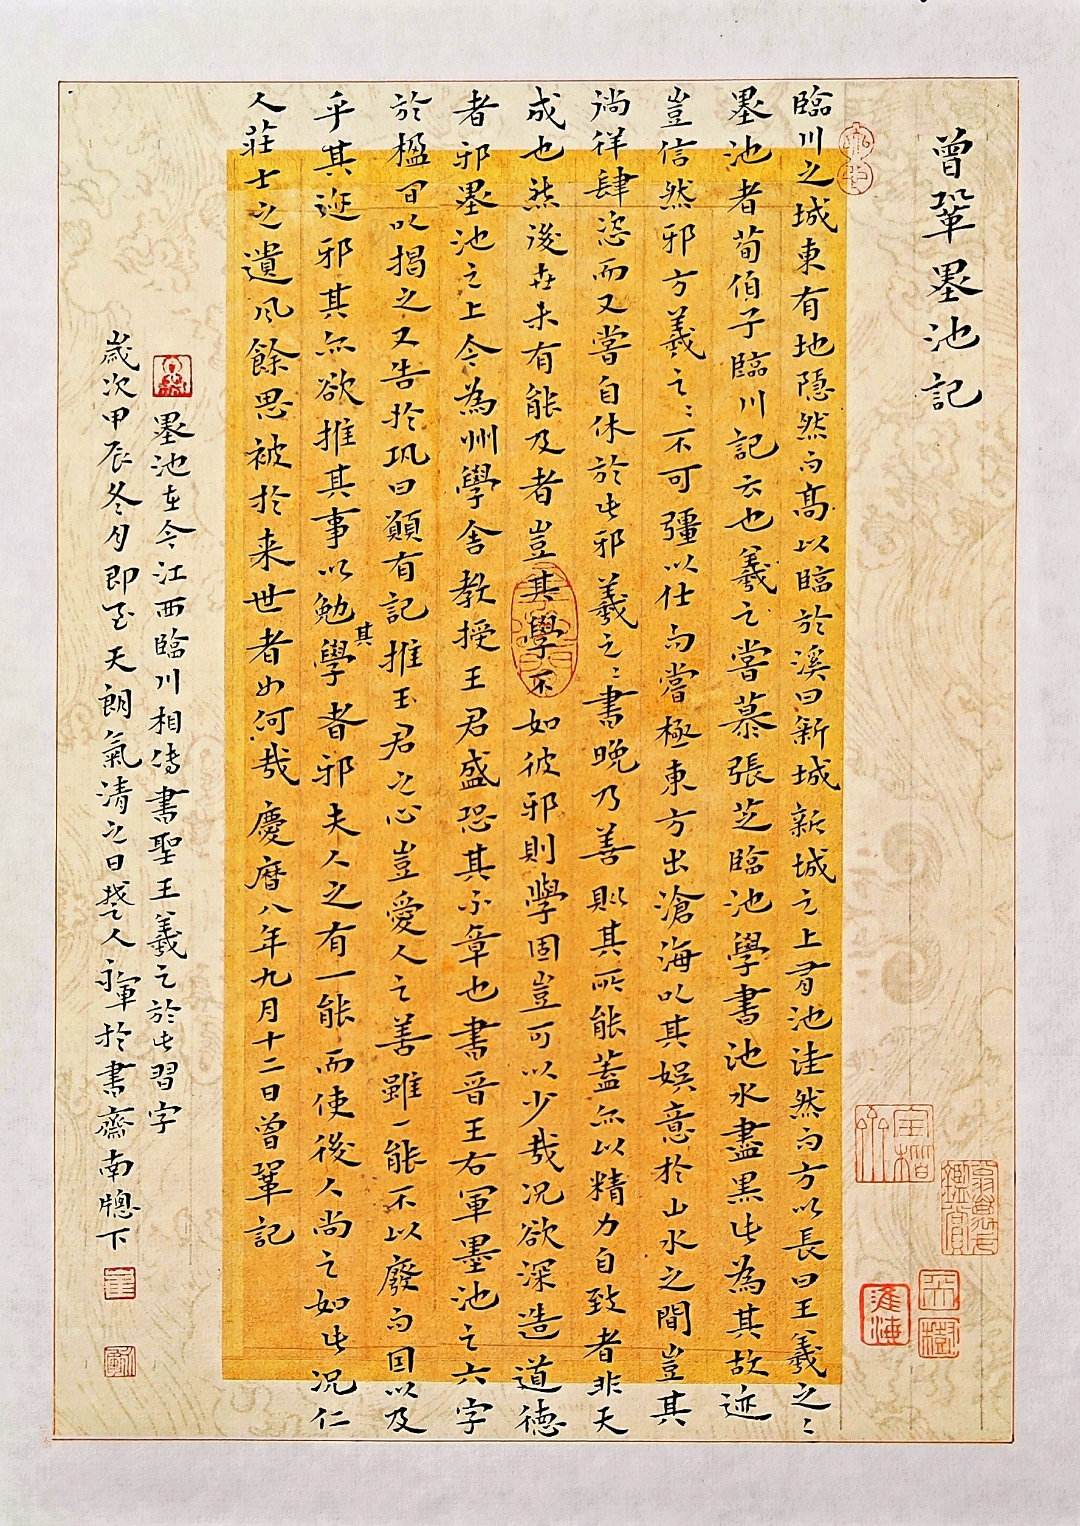 曾鞏墨池記
臨川之城東有地隱然而高以臨於溪曰新城新城之上有池洼然而方以長曰王羲之〻
墨池者荀伯子臨川記云也羲之嘗慕張芝臨池學書池水盡黑此為其故迹
豈信然邪方羲之〻不可彊以仕而嘗極東方出滄海以其娛意於山水之間豈其
徜徉肆恣而又嘗自休於此邪羲之〻書晚乃善則其所能蓋亦以精力自致者非天
成也然後世未有能及者豈其學不如彼邪則學固豈可以少哉况欲深造道德
者邪墨池之上今為州學舍教授王君盛恐其不章也書晉王右軍墨池之六字
於楹間以揭之又告於巩曰願有記推王君之心豈愛人之善雖一能不以廢而因以及
乎其迹邪其亦欲推其事以勉其學者邪夫人之有一能而使後人尚之如此况仁
人莊士之遺風餘思被於来世者如何哉慶曆八年九月十二日曾鞏記
墨池在今江西臨川相傳書聖王羲之於此習字
歲次甲辰冬月即至天朗氣清之日楚人永軍於書齋南牕下
淮海